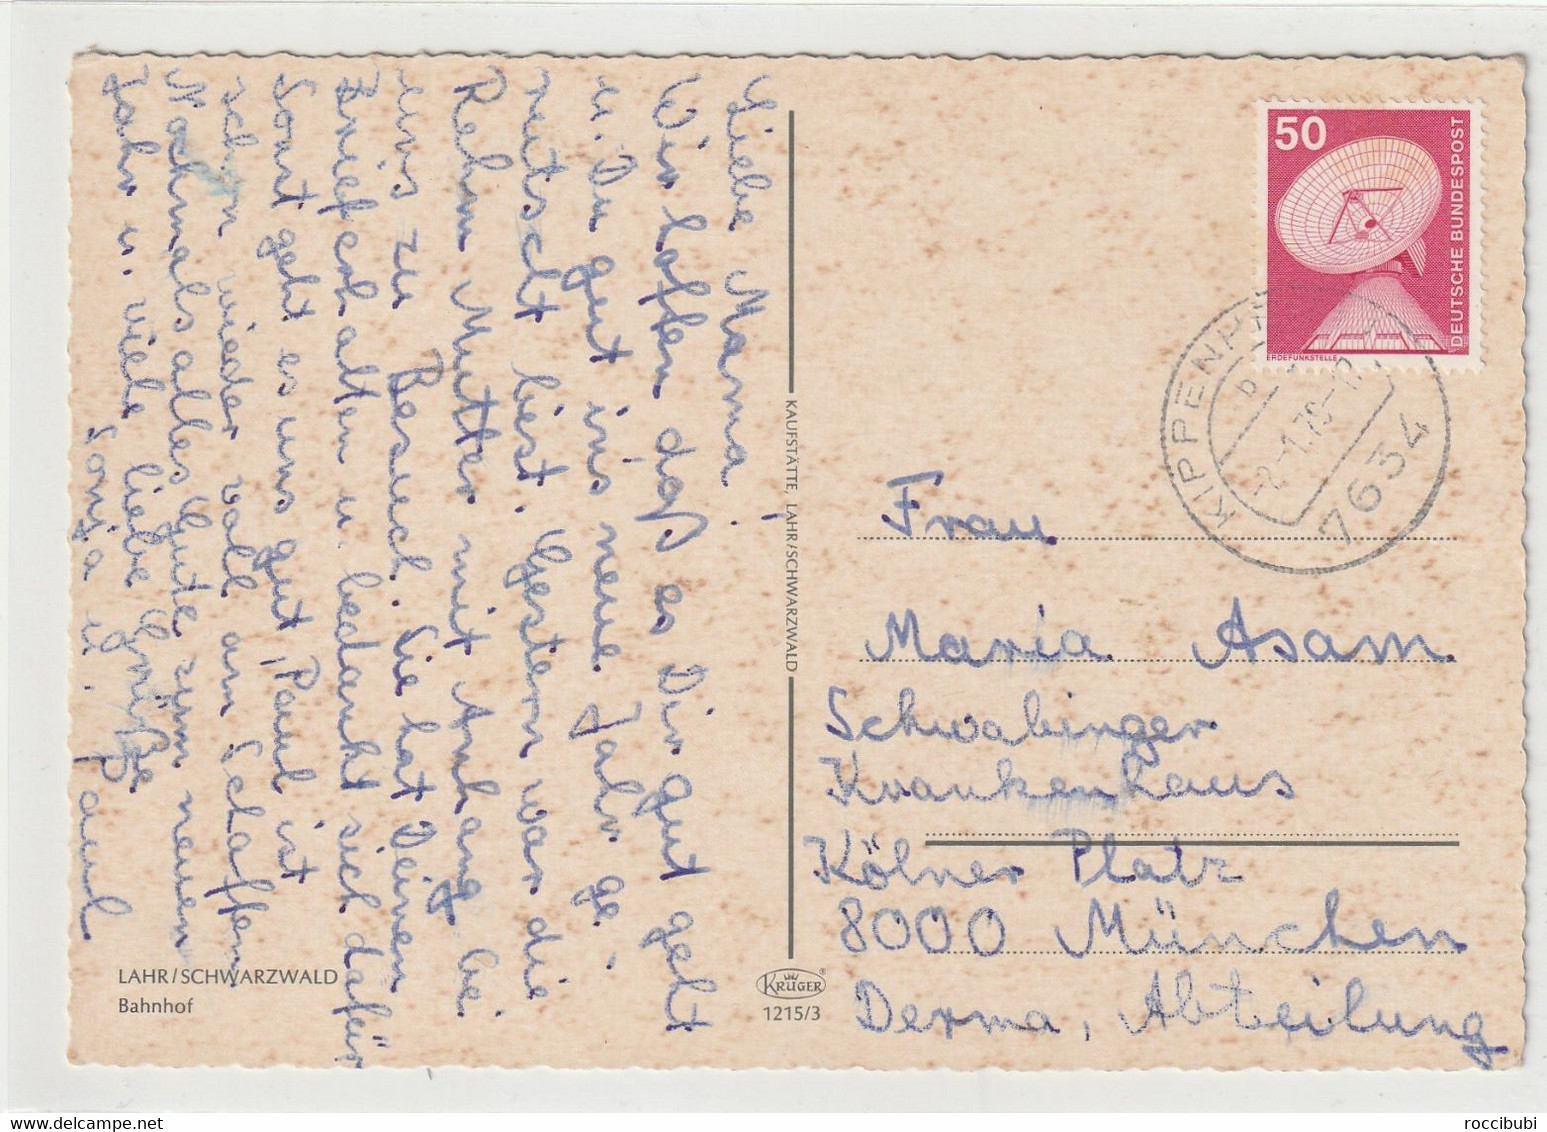 Liebe Mama!
Wir hoffen daß es Dir gut geht
u. Du gut ins neue Jahr ge-
rutscht bist. Gestern war die
Rehm Mutter mit Anhang bei
uns zu Besuch. Sie hat Deinen
Brief erhalten u. bedankt sich dafür
Sonst geht es uns gut, Paul ist
schon wieder voll am Schaffen
Nochmals alles Gute zum neuen
Jahr u. viele liebe Grüße
Sonja u. Paul
LAHR/SCHWARZWALD
Bahnhof
KAUFSTÄTTE, LAHR/SCHWARZWALD
KRÜGER®
1215/3
50
DEUTSCHE BUNDESPOST
ERDEFUNKSTELLE
7634
Frau
Maria Asam
Schwabinger
Krankenhaus
Kölner Platz
8000 München
Derma, Abteilung
roccibubi